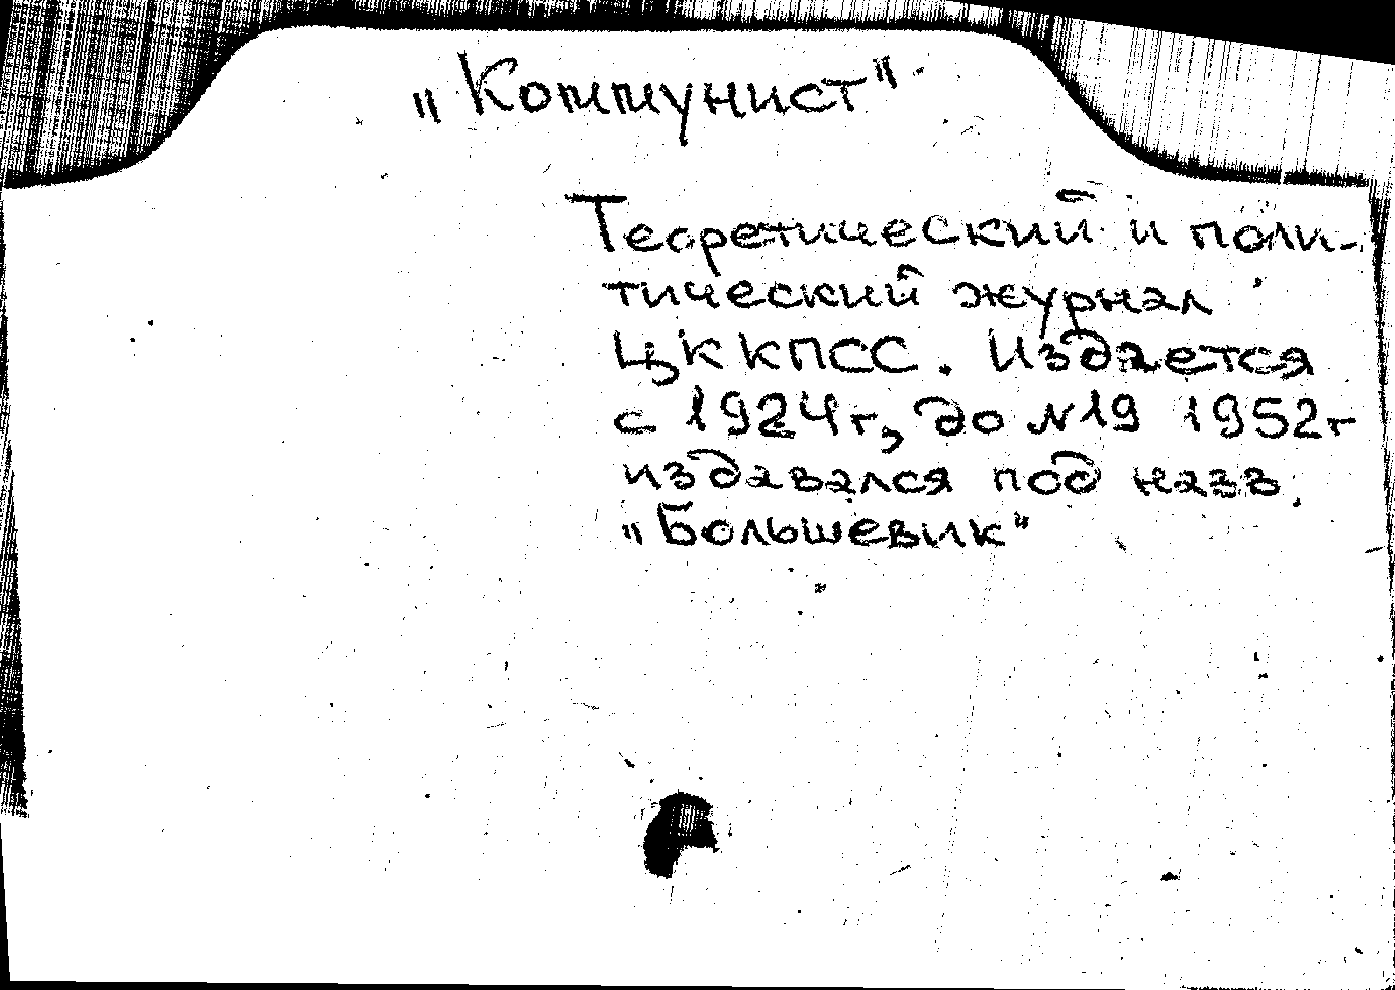 "Коммунист".
Теоретический и поли-
тический журнал
ЦК КПСС. Издается
с 1924г., до №19 1952г
издавался под назв.
"Большевик"